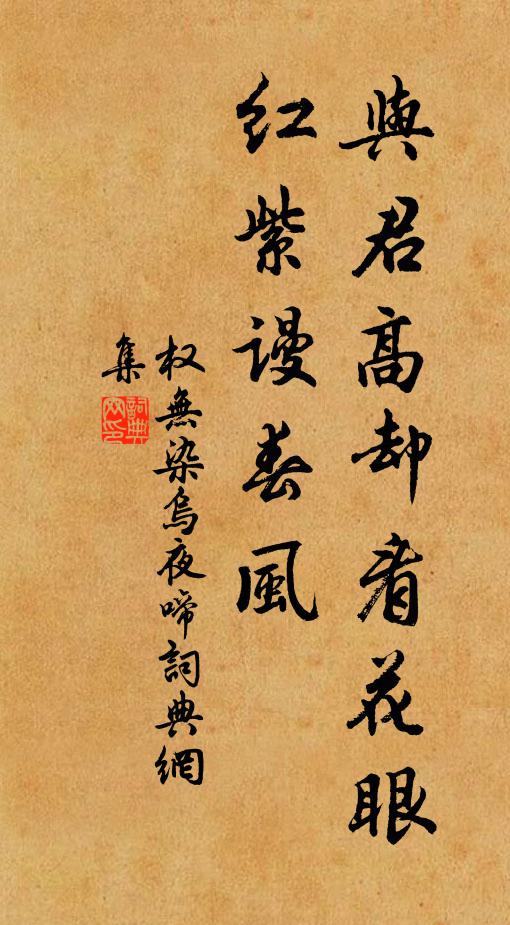 與君高却看花眼
紅紫謾春風
权無染烏夜啼詞典網
集
詞典
网印